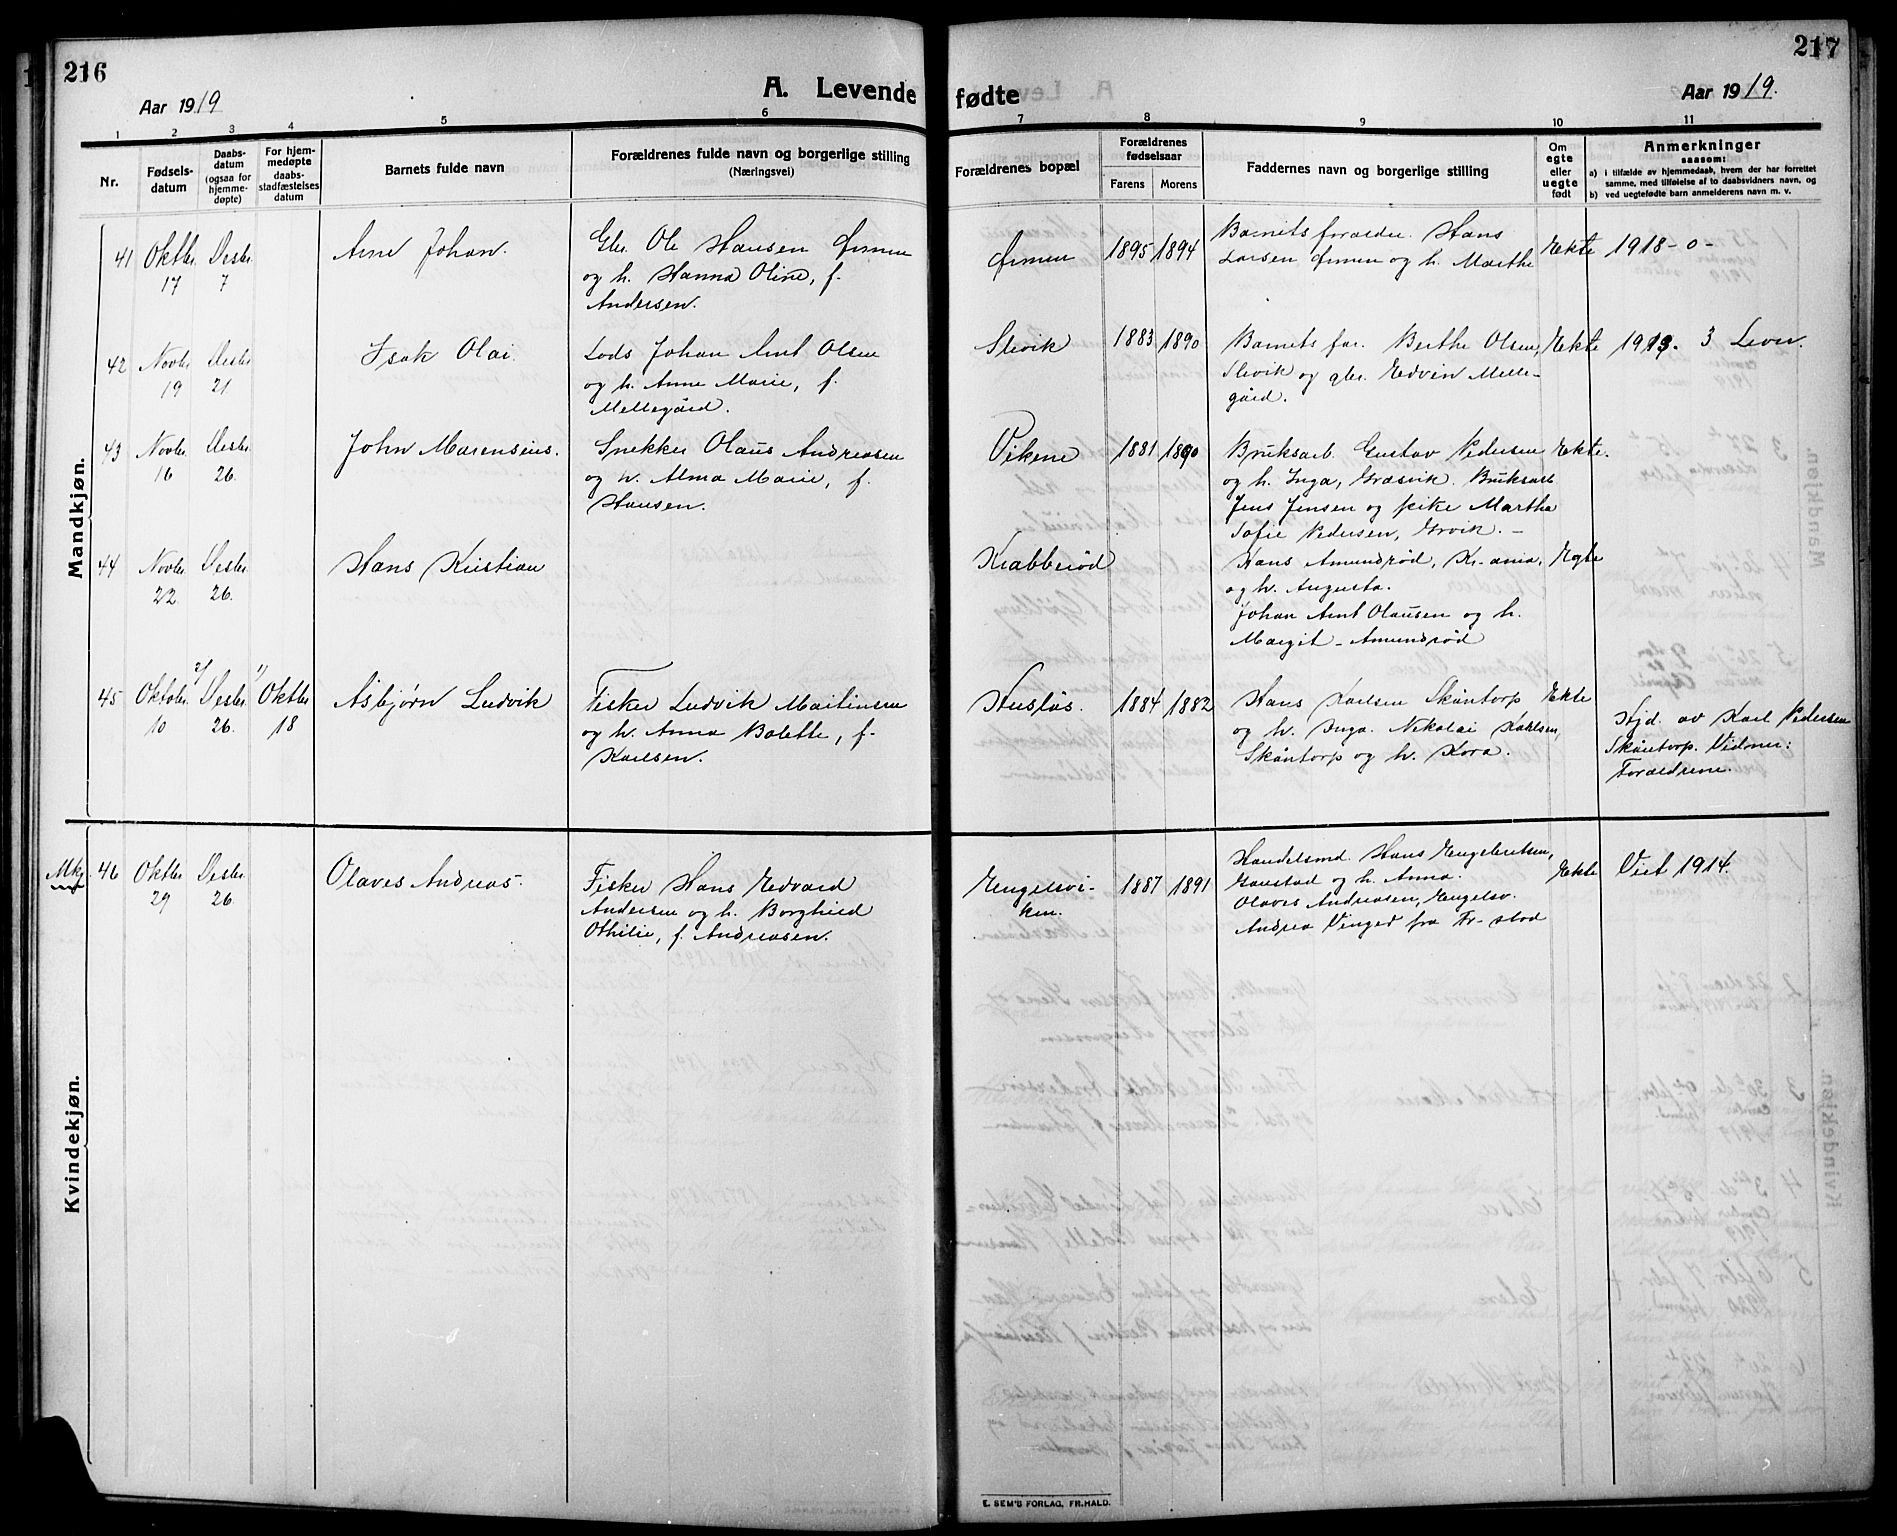 216
217
A. Levende fødte
Aar 1919
Aar 1919.
1 2 3 4 5 6 7 8 9 10 11
Nr.
Fødsels-
datum
Daabs-
datum
(ogsaa for
hjemme-
døpte)
For hjem-
medøpte
daabs-
stadfæstelses
datum
Barnets fulde navn
Forældrenes fulde navn og borgerlige stilling
(Næringsvei)
Forældrenes bopæl
Forældrenes
fødselsaar
Farens Morens
Faddernes navn og borgerlige stilling
Om
egte
eller
uegte
født
Anmerkninger
saasom:
a) i tilfælde av hjemmedaab, hvem der har forrettet
samme, med tilføielse af to daabsvidners navn, og
b) ved uegtefødte barn anmelderens navn m. v.
Mandkjøn.
41
Oktbr.
17
Desbr.
7
Arne Johan.
Gbr. Ole Hansen Ørmen
og h. Hanna Oline, f.
Andersen.
Ørmen
1895
1894
Barnets forældre. Hans
Larsen Ørmen og h. Marthe
Ekte
1918 - 0 -
42
Novbr.
19
Desbr.
21.
Isak Olai.
Lods Johan Arnt Olsen
og h. Anne Marie, f.
Mellegård.
Slevik
1883
1890
Barnets far. Berthe Olsen,
Slevik og gbr. Edvin Melle-
gård.
Ekte
1913. 3 Lever.
43
Novbr.
16
Desbr.
26.
John Marensius.
Snekker Olaus Andreasen
og h. Alma Marie, f.
Hansen.
Vikene
1881
1890
Bruksarb. Gustav Pedersen
og h. Inga, Græsvik. Bruksarb.
Jens Jensen og pike Martha
Sofie Pedersen, Ørvik. -
Ekte.
44
Novbr.
22.
Desbr.
26.
Hans Kristian
Krabberød
Hans Amundrød, Kr-ania,
og h. Augusta.
Johan Arnt Olausen og h.
Margit - Amundrød
Egte
45
Oktober
10
2/
Desbr.
26.
1/
Oktbr
18
Asbjørn Ludvik
Fisker Ludvik Martinsen
og h. Anna Bolette, f.
Karlsen.
Husløs.
1884
1882
Hans Karlsen Skåntorp
og h. Inga. Nikolai Karlsen,
Skåntorp og h. Kora.
Ekte
Hjd. av Karl Pedersen
Skåntorp. Vidner:
Forældrene.
Kvindekjøn.
Mkj.
46
Oktbr.
29
Desbr.
26.
Olaves Andreas.
Fisker Hans Edvard
Andersen og h. Borghild
Othilie, f. Andreasen.
Engelsvi-
ken.
1887
1891
Handelsmd. Hans Engebretsen,
Gaustad og h. Anna.
Olaves Andreasen, Engelsv.
Andrea Vinger fra Fr-stad
Ekte
Viet 1914.
E. SEM'S FORLAG, FR.HALD.